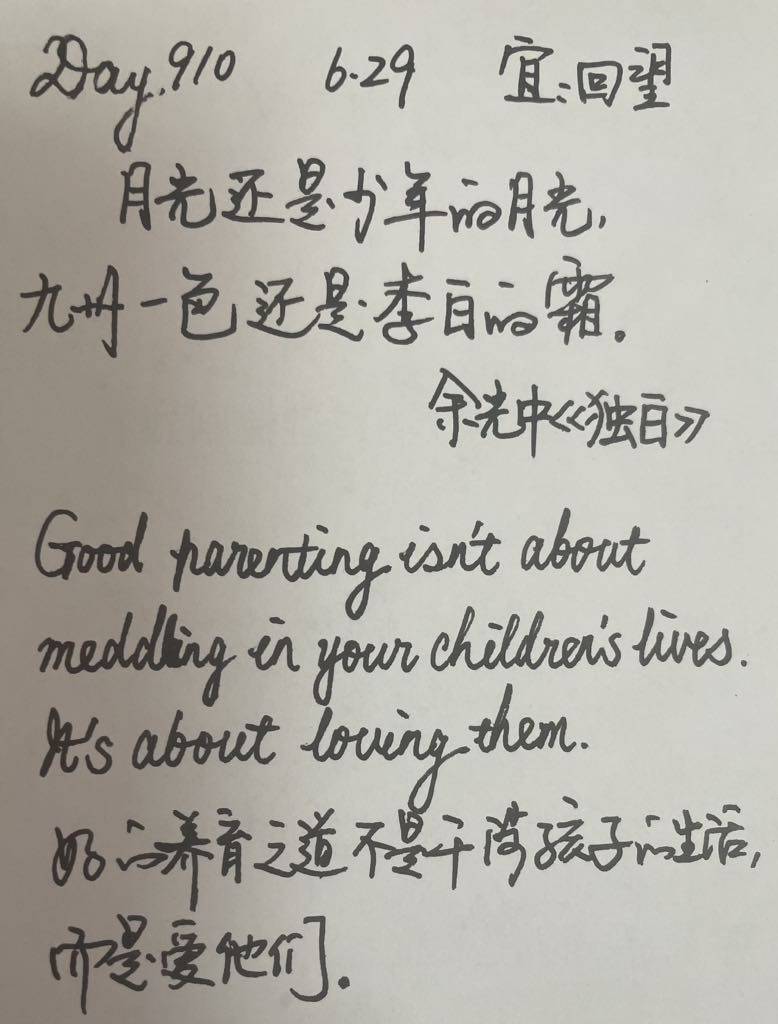 Day.910 6.29 宜:回望
月光还是少年的月光,
九州一色还是李白的霜。
余光中《独白》
Good parenting isn't about
meddling in your children's lives.
It's about loving them.
好的养育之道不是干涉孩子的生活,
而是爱他们。